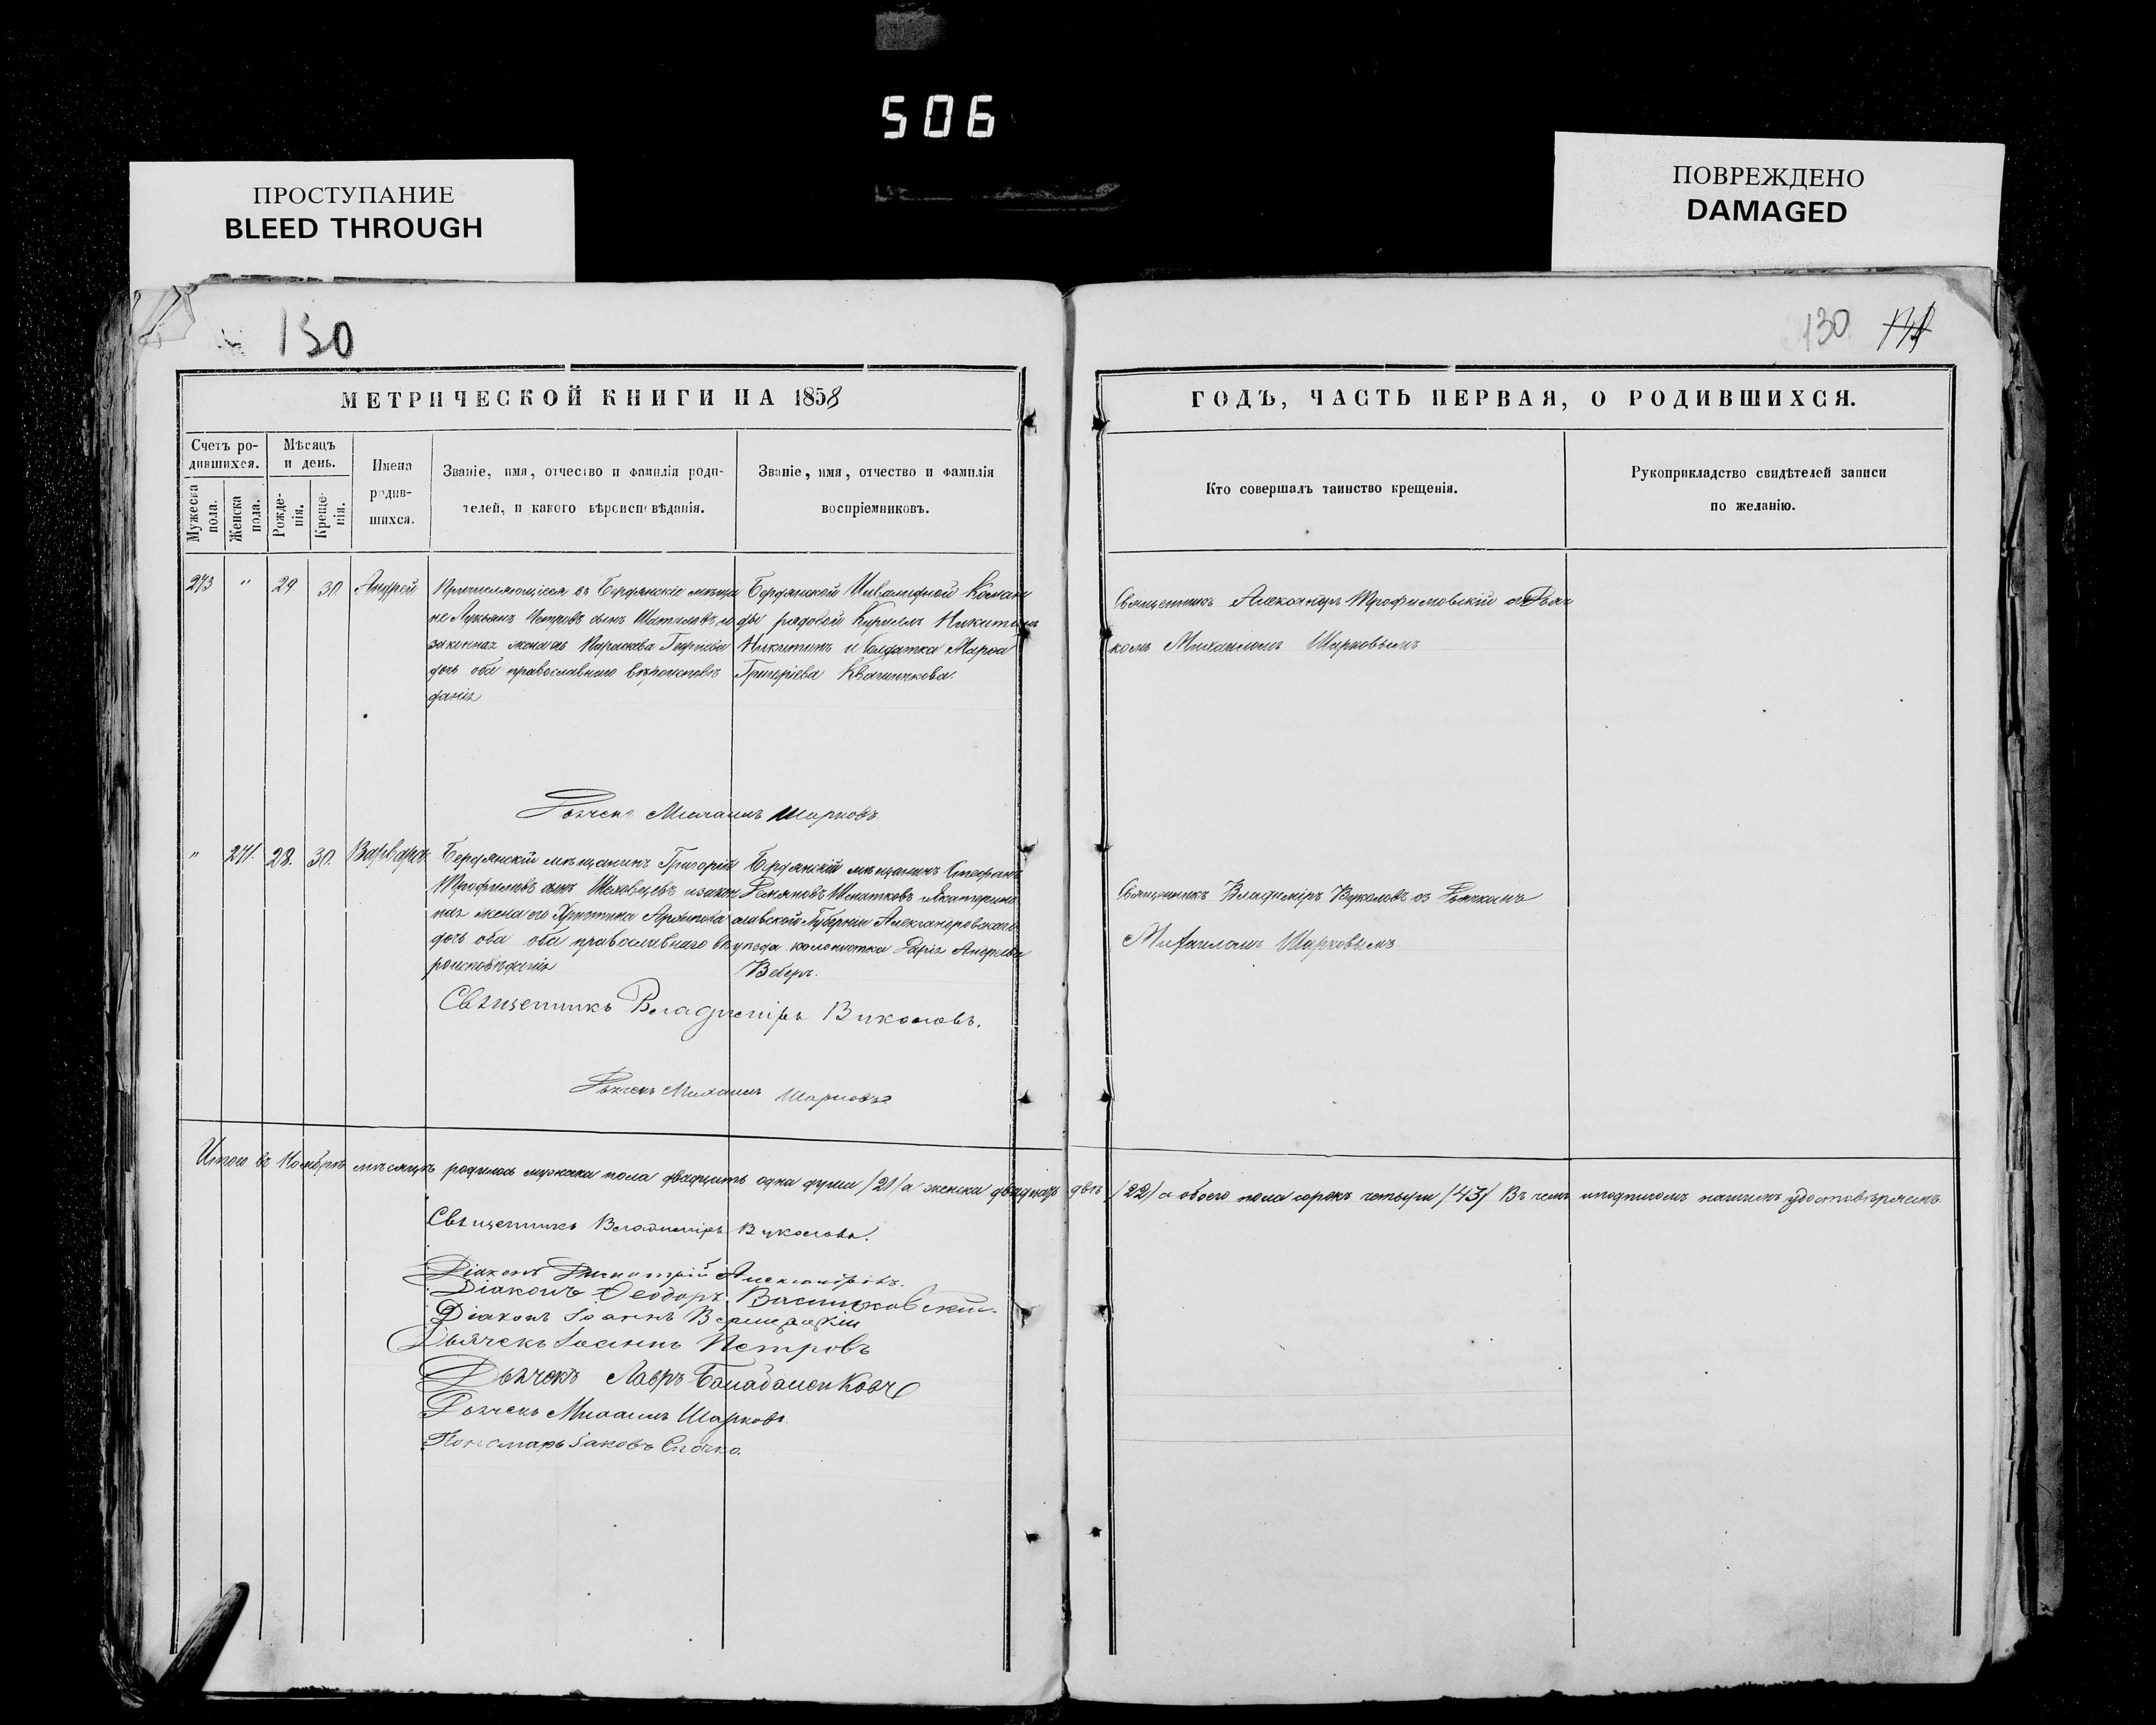 506
ПРОСТУПАНИЕ
BLEED THROUGH
ПОВРЕЖДЕНО
DAMAGED
130
130
МЕТРИЧЕСКОЙ КНИГИ НА 1858
ГОДЪ, ЧАСТЬ ПЕРВАЯ, О РОДИВШИХСЯ.
Счетъ ро-
дившихся.
Мужеска пола.
Женска пола.
Мѣсяцъ
и день.
Рожде-
нія.
Креще-
нія.
Имена
родив-
шихся.
Званіе, имя, отчество и фамилія роди-
телей, и какого вѣроисповѣданія.
Званіе, имя, отчество и фамилія
воспріемниковъ.
Кто совершалъ таинство крещенія.
Рукоприкладство свидѣтелей записи
по желанію.
273 " 29. 30. Андрей
Причисляющійся въ Бердянскіе мѣща
не Лукьянъ Петровъ сынъ и
законная жена его Параскева Георгіева
дочь оба православнаго вѣроисповѣ
данія
Бердянской Инвалидной Коман
ды рядовой Кириллъ Никитинъ
Никитинъ и солдатка Марѳа
Григоріева
Священникъ Александръ Трофимовскій съ Дьяч
комъ Михаиломъ Шарковымъ
Дьячекъ Михаилъ Шарковъ
" 271. 28. 30. Варвара
Бердянскій мѣщанинъ Григорій
Трофимовъ сынъ и закон
ная жена его Христина
дочь оба оба православнаго вѣ
роисповѣданія
Бердянскій мѣщанинъ Стефанъ
Екатерино
славской Губерніи Александровскаго
уѣзда колонистка Дарія Андреева
Веберъ.
Священникъ Владиміръ Вуколовъ съ Дьячкомъ
Михаиломъ Шарковымъ
Священникъ Владиміръ Вуколовъ.
Дьячекъ Михаилъ Шарковъ
Итого въ Ноябрѣ мѣсяцѣ родилось мужеска пола двадцать одна душа /21/ а женска двадцать двѣ /22/ а обоего пола сорокъ четыри /43/ Въ чемъ и подписомъ нашимъ удостовѣряемъ.
Священникъ Владиміръ Вуколовъ.
Діаконъ Димитрій Александровъ.
Діаконъ Ѳеодоръ Васильковскій
Діаконъ Іоаннъ
Дьячекъ Іоаннъ Петровъ
Дьячекъ Лавръ
Дьячекъ Михаилъ Шарковъ.
Пономарь Іаковъ